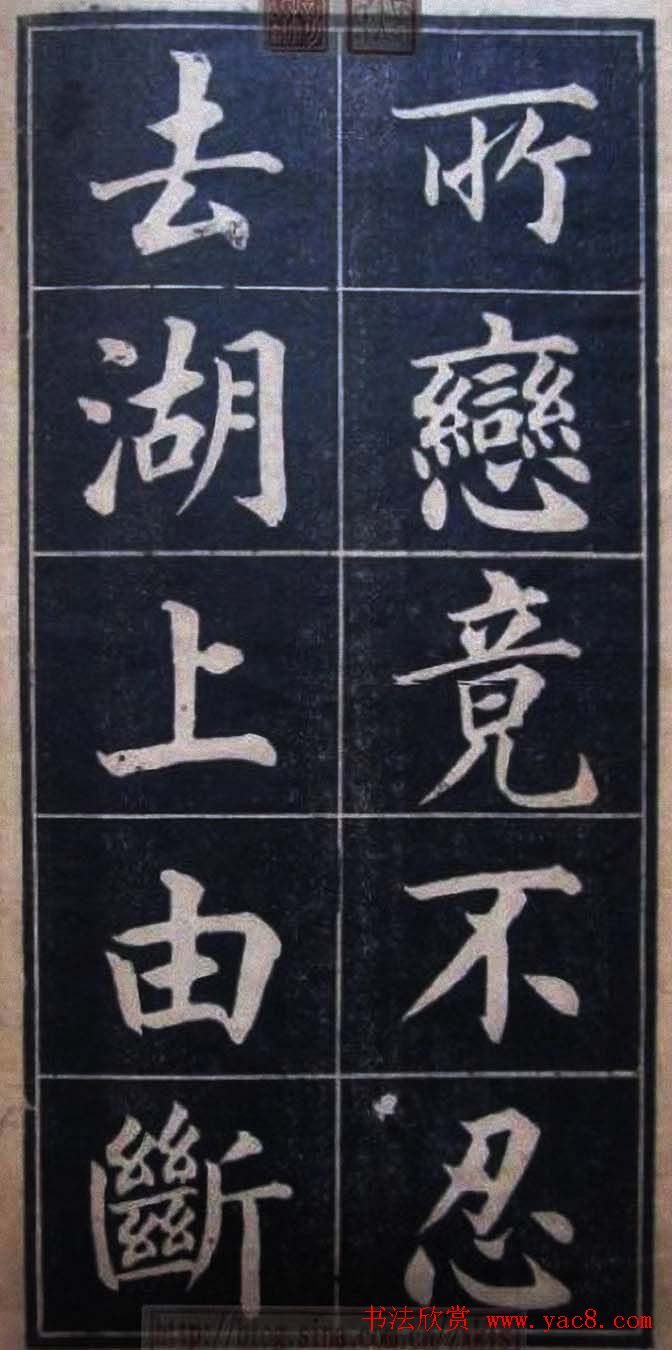 所戀竟不忍
去湖上由斷
书法欣赏 www.yac8.com